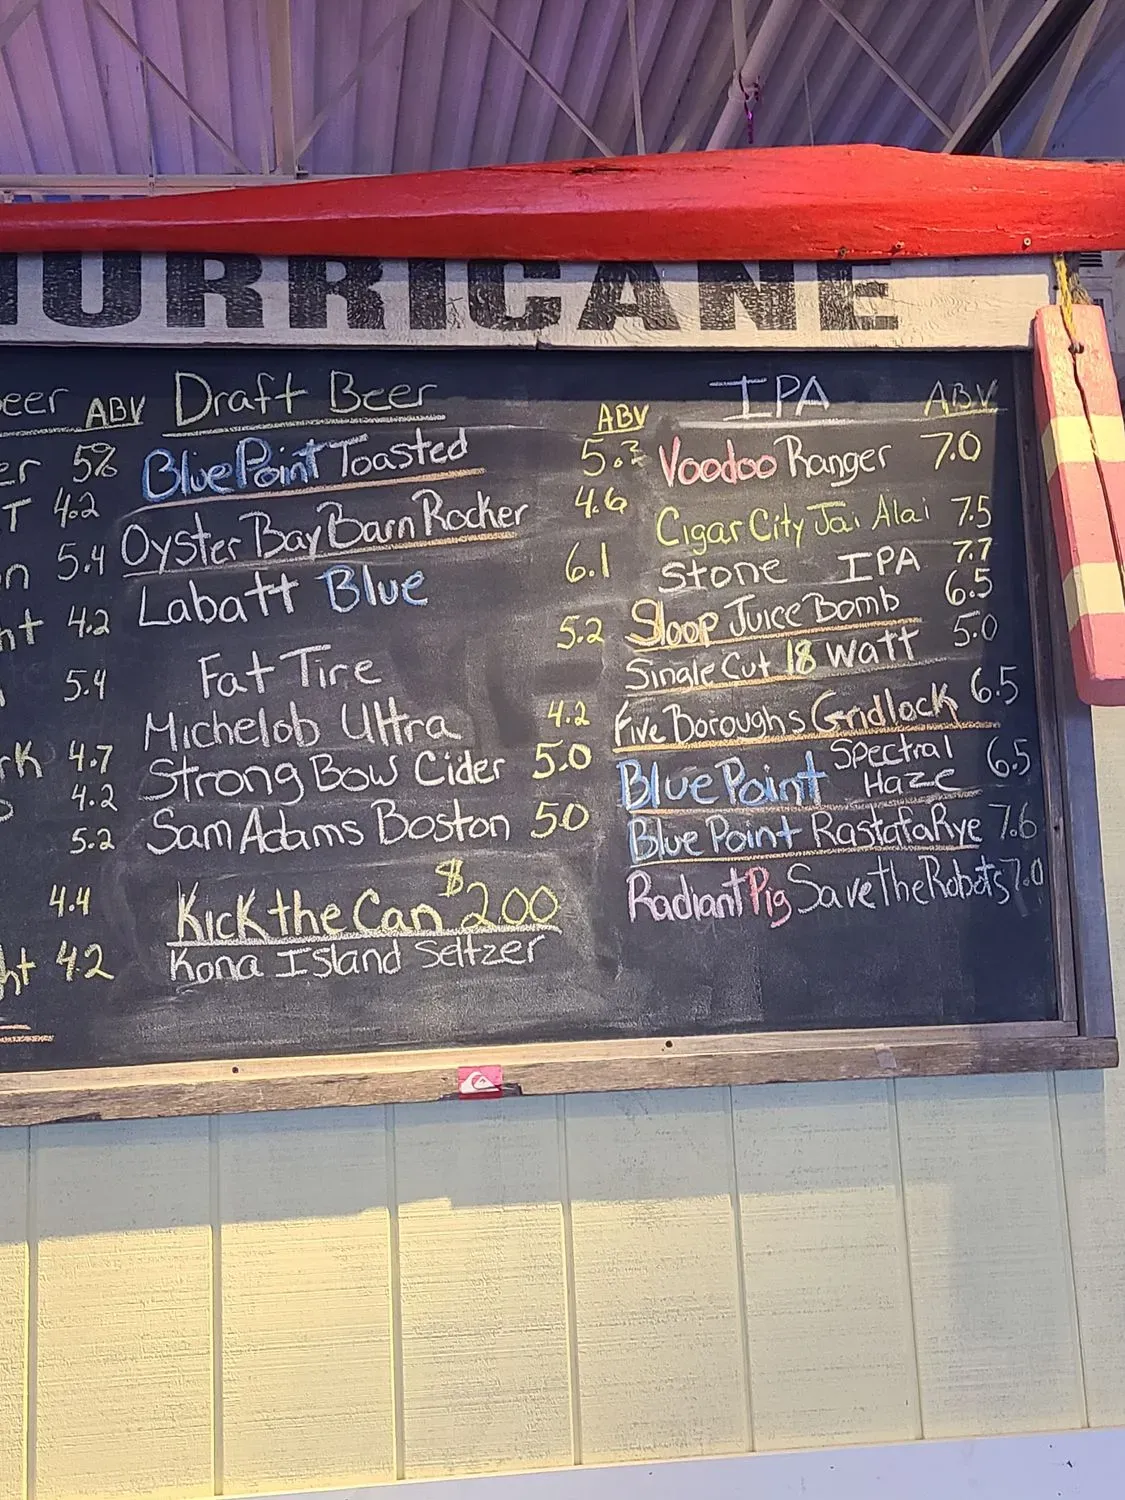 URRICANE
eer ABV
er 5%
T 4.2
n 5.4
ht 4.2
5.4
rk 4.7
4.2
5.2
4.4
ht 4.2
Draft Beer ABV
Blue Point Toasted 5.3
Oyster Bay Barn Rocker 4.6
Labatt Blue 6.1
Fat Tire 5.2
Michelob Ultra 4.2
Strong Bow Cider 5.0
Sam Adams Boston 5.0
Kick the Can $2.00
Kona Island Seltzer
IPA ABV
Voodoo Ranger 7.0
Cigar City Jai Alai 7.5
Stone IPA 7.7
Sloop Juice Bomb 6.5
Single Cut 18 Watt 5.0
Five Boroughs Gridlock 6.5
Blue Point Spectral
Haze 6.5
Blue Point RastafaRye 7.6
Radiant Pig Save the Robots 7.0